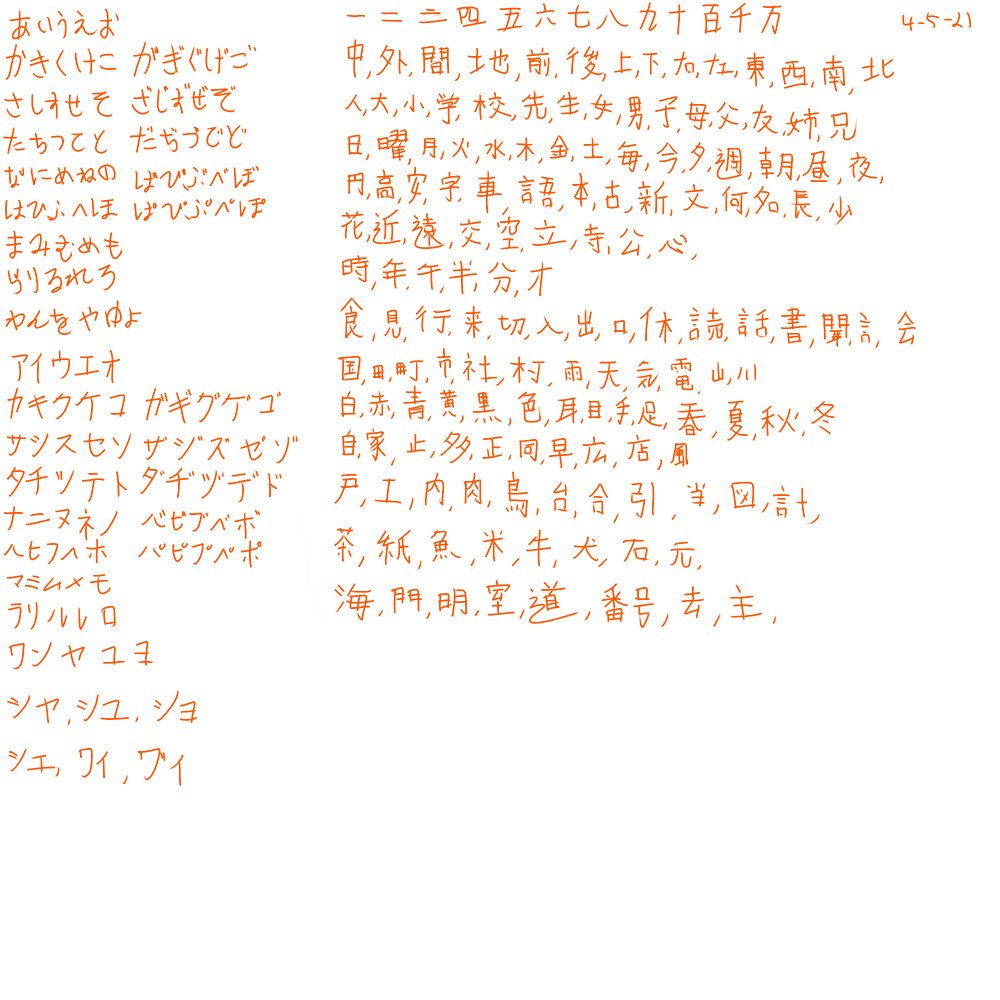 あいうえお
かきくけこ がぎぐげご
さしすせそ ざじずぜぞ
たちつてと だぢづでど
なにめねの ばびぶべぼ
はひふへほ ぱぴぷぺぽ
まみむめも
らりるれろ
わんをやゆよ
アイウエオ
カキクケコ ガギグゲゴ
サシスセソ ザジズゼゾ
タチツテト ダヂヅデド
ナニヌネノ バビブベボ
ヘヒフヘホ パピプペポ
マミムメモ
ラリルレロ
ワンヤユヨ
シヤ,シユ,ショ
シエ,ワイ,ヴイ
一二三四五六七八九十百千万
4-5-21
中,外,間,地,前,後,上,下,右,左,東,西,南,北
人,大,小,学,校,先,生,女,男,子,母,父,友,姉,兄
日,曜,月,火,水,木,金,土,毎,今,夕,週,朝,昼,夜,
円,高,安,字,車,語,本,古,新,文,何,名,長,少
花,近,遠,交,空,立,寺,公,心,
時,年,午,半,分,才
食,見,行,来,切,入,出,口,休,読,話,書,聞,言,会
国,田,町,市,社,村,雨,天,気,電,山,川
白,赤,青,黄,黒,色,耳,目,手,足,春,夏,秋,冬
自,家,止,多,正,同,早,広,店,風
戸,工,内,肉,鳥,台,合,引,当,図,計,
茶,紙,魚,米,牛,犬,石,元,
海,門,明,室,道,番号,去,主,